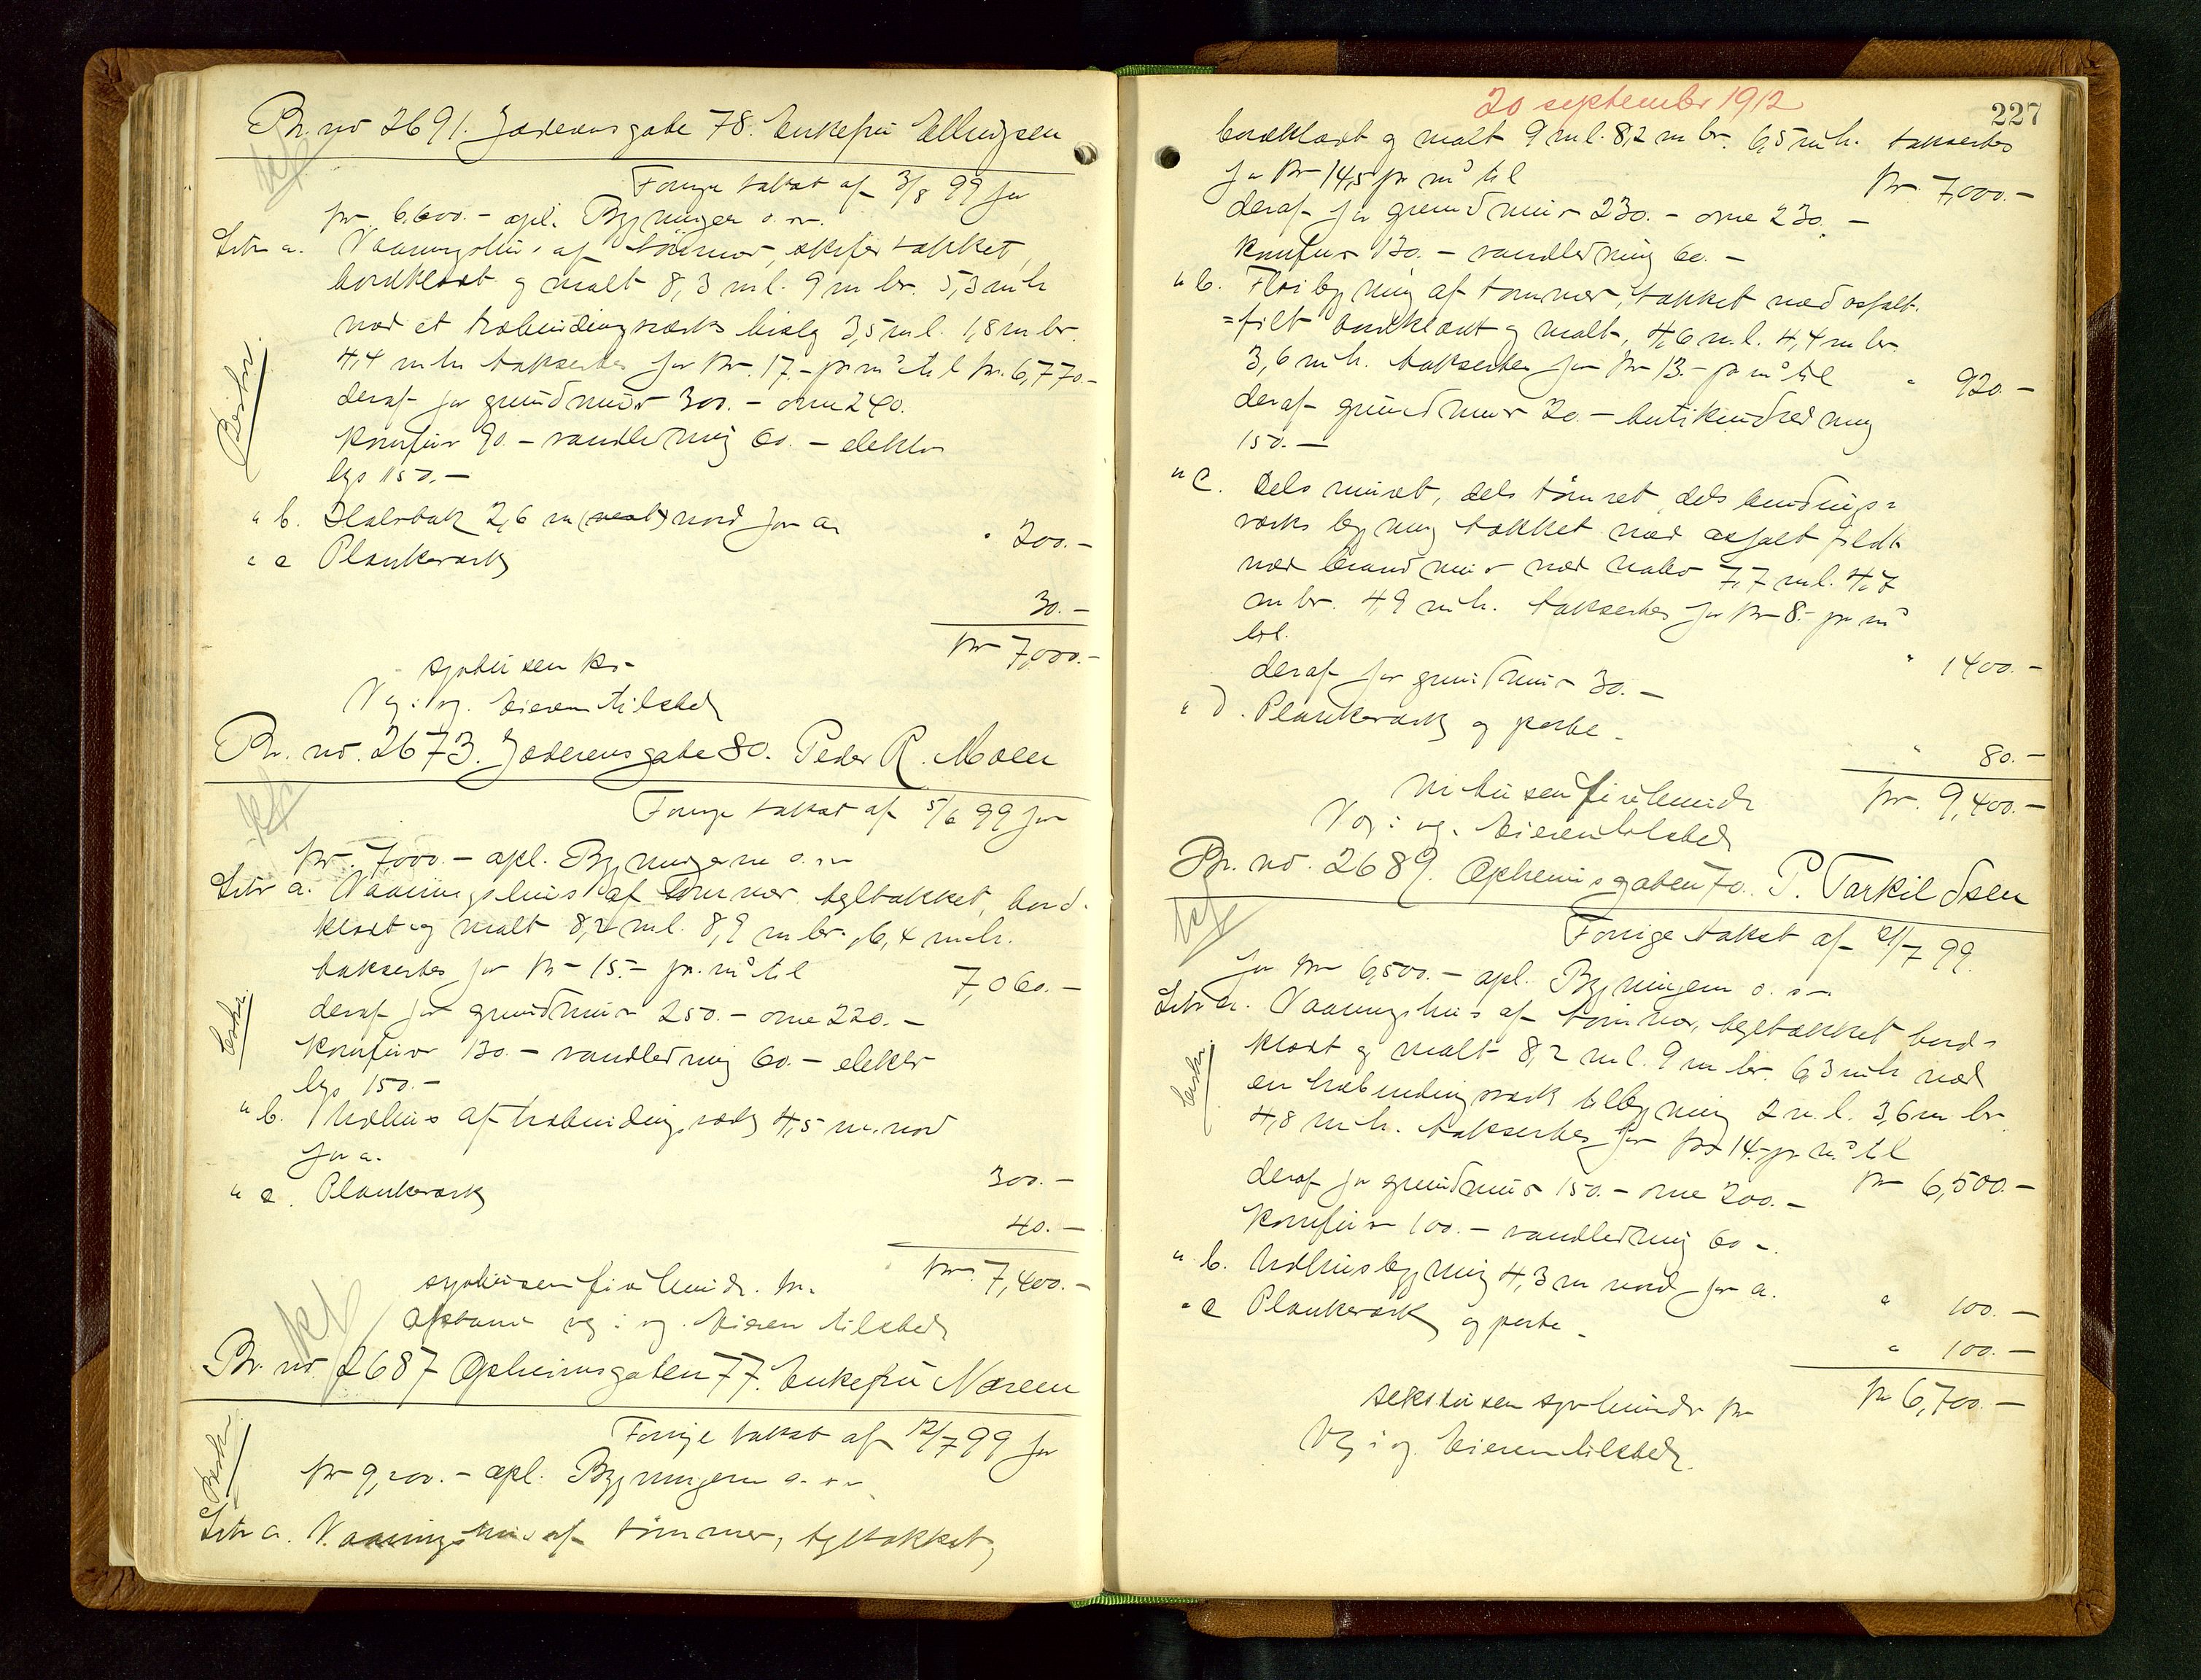 Br. no 2691. Jæderensgade 78. Enkefru Ellingsen
Forrige takst af 3/8 99 for
kr. 6.600.- opl. Bygningen o.s.v.
Litr a. Vaaningshus af tömmer, skifertækket,
bordklædt og malt 8,3 m l. 9 m br. 5,3 m h
med et træbindingsværks bislag 3,5 m l. 1,8 m br.
4,4 m h takseres for kr. 17.- pr m³ til kr. 6,770.-
deraf for grundmur 300.- ovne 240.
komfur 90.- vandledning 60.- elektr
lys 150.-
Beskr.
" b. 2,6 m (vest) nord for a
" 200.-
" c Plankeværk
30.-
kr 7,000.-
syvtusen kr.-
Veg: og. Eieren tilsted
Br. no. 2673. Jæderensgade 80. Peder R. Moen
Forrige takst af 5/6 99 for
kr. 7,000.- opl. Bygningerne o.s.v
Litr a. Vaaningshus af tömmer tegltækket, bord-
klædt og malt 8,2 m l. 8,9 m br., 6,4 m h.
takseres for kr 15.- pr. m³ til 7,060.-
deraf for grundmur 250.- ovne 220.-
komfur 130.- vandledning 60.- elektr
lys 150.-
Beskr.
" b. Udhus af træbindingsværk 4,5 m. nord
for a.
300.-
" c. Plankeværk
40.-
kr. 7,400.-
syvtusenfirehundr. kr.
veg: og. Eieren tilsted
Br. no 2687 Opheimsgaten 77. Enkefru Næreen
Forrige takst af 12/7 99 for
kr 9,200.- opl. Bygningerne o.s.v
Beskr.
Litr a. Vaaningshus af tömmer, tegltækket,
20 september 1912
227
bordklædt og malt 9 m l. 8,2 m br. 6,5 m h. takseres
for kr 14,5 pr m³ til kr. 7,000.-
deraf for grundmur 230.- ovne 230.-
komfur 130.- vandledning 60.-
" b. Flöibygning af tömmer, tækket med asfalt-
=filt bordklædt og malt, 4,6 m l. 4,4 m br.
3,6 m h. takseres for kr 13.- pr m³ til " 920.-
deraf grundmur 20.- butikindredning
150.-
" c. Dels muret, dels tömret, dels bindings=
værks bygning tækket med asfalt fildt
med brandmur mod nabo 7,7 m l. 4,7
m br. 4,9 m h. takseres for kr 8.- pr m³
til. " 1400.-
deraf for grundmur 30.-
" d. Plankeværk og porte.
" 80.-
kr. 9,400.-
nitusenfirehundr
Veg: og. Eieren tilsted
Br. no. 2689. Opheimsgaten 70. P. Tarkildsen
Forrige takst af 21/7 99.
for kr 6,500.- opl. Bygningerne o.s.v.
Litr a. Vaaningshus af tömmer, tegltækket bord=
klædt og malt 8,2 m l. 9 m br. 6,3 m h med
en træbindingsværk tilbygning 2 m l. 3,6 m br.
4,8 m h. takseres for kr 14.- pr m³ til
kr 6,500.-
deraf for grundmur 150.- ovne 200.-
komfur 100.- vandledning 60.-.
Beskr.
" b. Udhusbygning 4,3 m nord for a.
" 100.-
" c Plankeværk og porte.
" 100.-
kr 6,700.-
sekstusen syvhundr kr
Veg: og. Eieren tilsted.